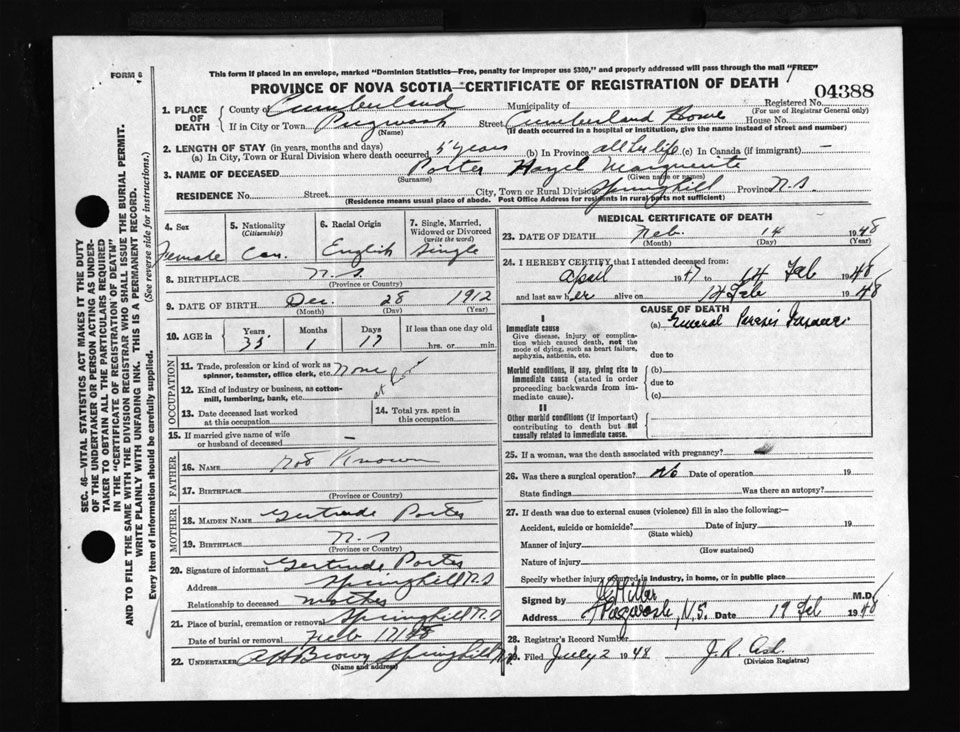 FORM 6
This form if placed in an envelope, marked "Dominion Statistics—Free, penalty for improper use $300," and properly addressed will pass through the mail "FREE"
PROVINCE OF NOVA SCOTIA—CERTIFICATE OF REGISTRATION OF DEATH
04388
1. PLACE OF DEATH County of Cumberland Municipality of Registered No. (For use of Registrar General only)
If in City or Town Pugwash (Name) Street Cumberland Home House No.
(If death occurred in a hospital or institution, give the name instead of street and number)
2. LENGTH OF STAY (in years, months and days)
(a) In City, Town or Rural Division where death occurred 5 years (b) In Province all her life (c) In Canada (if immigrant) —
3. NAME OF DECEASED Porter Hazel Marguerite
(Surname) (Given name or names)
RESIDENCE No. Street City, Town or Rural Division Springhill Province N.S.
(Residence means usual place of abode. Post Office Address for residents in rural parts not sufficient)
4. Sex Female
5. Nationality (Citizenship) Can.
6. Racial Origin English
7. Single, Married, Widowed or Divorced (write the word) Single
8. BIRTHPLACE N.S.
(Province or Country)
9. DATE OF BIRTH Dec. 28 1912
(Month) (Day) (Year)
10. AGE in Years 35 Months 1 Days 17 If less than one day old hrs. or min.
OCCUPATION
11. Trade, profession or kind of work as spinner, teamster, office clerk, etc. None
12. Kind of industry or business, as cotton-mill, lumbering, bank, etc. at
13. Date deceased last worked at this occupation
14. Total yrs. spent in this occupation
15. If married give name of wife or husband of deceased —
FATHER
16. NAME Not Known
17. BIRTHPLACE
(Province or Country)
MOTHER
18. MAIDEN NAME Gertrude Porter
19. BIRTHPLACE N.S
(Province or Country)
20. Signature of informant Gertrude Porter
Address Springhill N.S
Relationship to deceased mother
21. Place of burial, cremation or removal Springhill N.S
Date of burial or removal Feb 17/48
22. UNDERTAKER A H Brown Springhill N.S
(Name and address)
MEDICAL CERTIFICATE OF DEATH
23. DATE OF DEATH Feb. 14 1948
(Month) (Day) (Year)
24. I HEREBY CERTIFY that I attended deceased from:
April 1947 to 14 Feb 1948
and last saw her alive on 14 Feb 1948
CAUSE OF DEATH
I
Immediate cause
Give disease, injury or complication which caused death, not the mode of dying, such as heart failure, asphyxia, asthenia, etc.
(a) General Paresis
due to
Morbid conditions, if any, giving rise to immediate cause (stated in order proceeding backwards from immediate cause).
(b)
due to
(c)
II
Other morbid conditions (if important) contributing to death but not causally related to immediate cause.
25. If a woman, was the death associated with pregnancy?
26. Was there a surgical operation? No Date of operation 19
State findings Was there an autopsy?
27. If death was due to external causes (violence) fill in also the following:—
Accident, suicide or homicide? Date of injury 19
(State which)
Manner of injury
(How sustained)
Nature of injury
Specify whether injury occurred in industry, in home, or in public place
Signed by Hiller M.D.
Address Pugwash, N.S. Date 19 Feb 1948
28. Registrar's Record Number
29. Filed July 2 1948 J.R. Ash.
(Division Registrar)
SEC. 46—VITAL STATISTICS ACT MAKES IT THE DUTY
OF THE UNDERTAKER OR PERSON ACTING AS UNDER-
TAKER TO OBTAIN ALL THE PARTICULARS REQUIRED
IN THE "CERTIFICATE OF REGISTRATION OF DEATH"
AND TO FILE THE SAME WITH THE DIVISION REGISTRAR WHO SHALL ISSUE THE BURIAL PERMIT.
WRITE PLAINLY WITH UNFADING INK. THIS IS A PERMANENT RECORD.
Every item of information should be carefully supplied. (See reverse side for instructions.)